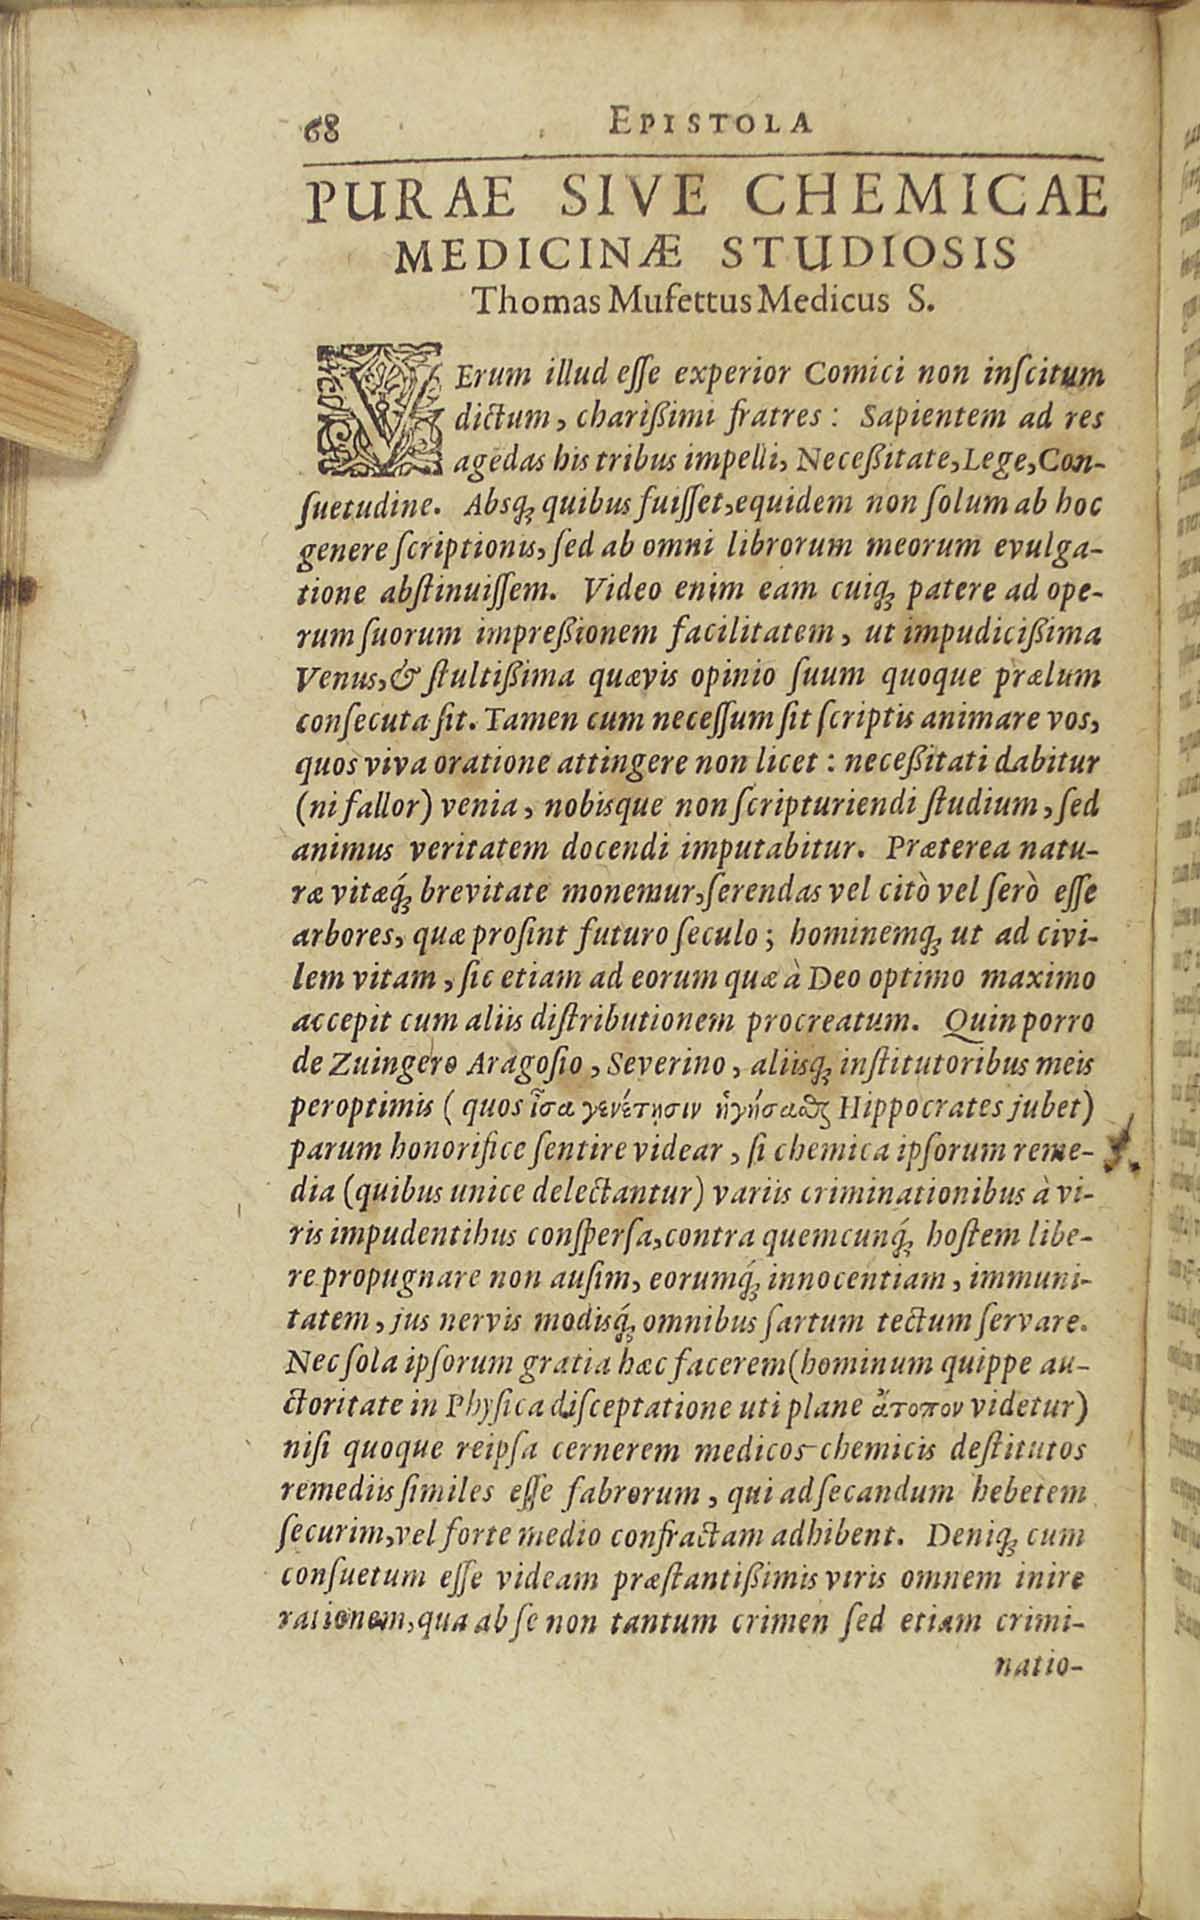 68 EPISTOLA
PURAE SIVE CHEMICAE
MEDICINÆ STUDIOSIS
Thomas Mufettus Medicus S.
VErum illud eſſe experior Comici non inſcitum
dictum, charißimi fratres: Sapientem ad res
agẽdas his tribus impelli, Neceßitate, Lege, Con-
ſuetudine. Absq; quibus fuiſſet, equidem non ſolum ab hoc
genere ſcriptionis, ſed ab omni librorum meorum evulga-
tione abſtinuiſſem. Video enim eam cuiq; patere ad ope-
rum ſuorum impreßionem facilitatem, ut impudicißima
Venus, & ſtultißima quævis opinio ſuum quoque prælum
conſecuta ſit. Tamen cum neceſſum ſit ſcriptis animare vos,
quos viva oratione attingere non licet: neceßitati dabitur
(ni fallor) venia, nobisque non ſcripturiendi ſtudium, ſed
animus veritatem docendi imputabitur. Præterea natu-
ræ vitæq́; brevitate monemur, ſerendas vel citò vel ſerò eſſe
arbores, quæ proſint futuro ſeculo; hominemq; ut ad civi-
lem vitam, ſic etiam ad eorum quæ à Deo optimo maximo
accepit cum aliis diſtributionem procreatum. Quin porro
de Zuingero Aragoſio, Severino, aliisq; inſtitutoribus meis
peroptimis (quos ἶσα γενέτῃσιν ἡγήσαϑς Hippocrates jubet)
parum honorifice ſentire videar, ſi chemica ipſorum reme-
dia (quibus unice delectantur) variis criminationibus à vi-
ris impudentibus conſperſa, contra quemcunq́; hoſtem libe-
re propugnare non auſim, eorumq́; innocentiam, immuni-
tatem, jus nervis modisq́; omnibus ſartum tectum ſervare.
Nec ſola ipſorum gratia hæc facerem (hominum quippe au-
ctoritate in Phyſica diſceptatione uti plane ἄτοπον videtur)
niſi quoque reipſa cernerem medicos chemicis deſtitutos
remediis ſimiles eſſe fabrorum, qui ad ſecandum hebetem
ſecurim, vel forte medio confractam adhibent. Deniq; cum
conſuetum eſſe videam præſtantißimis viris omnem inire
rationem, qua ab ſe non tantum crimen ſed etiam crimi-
natio-